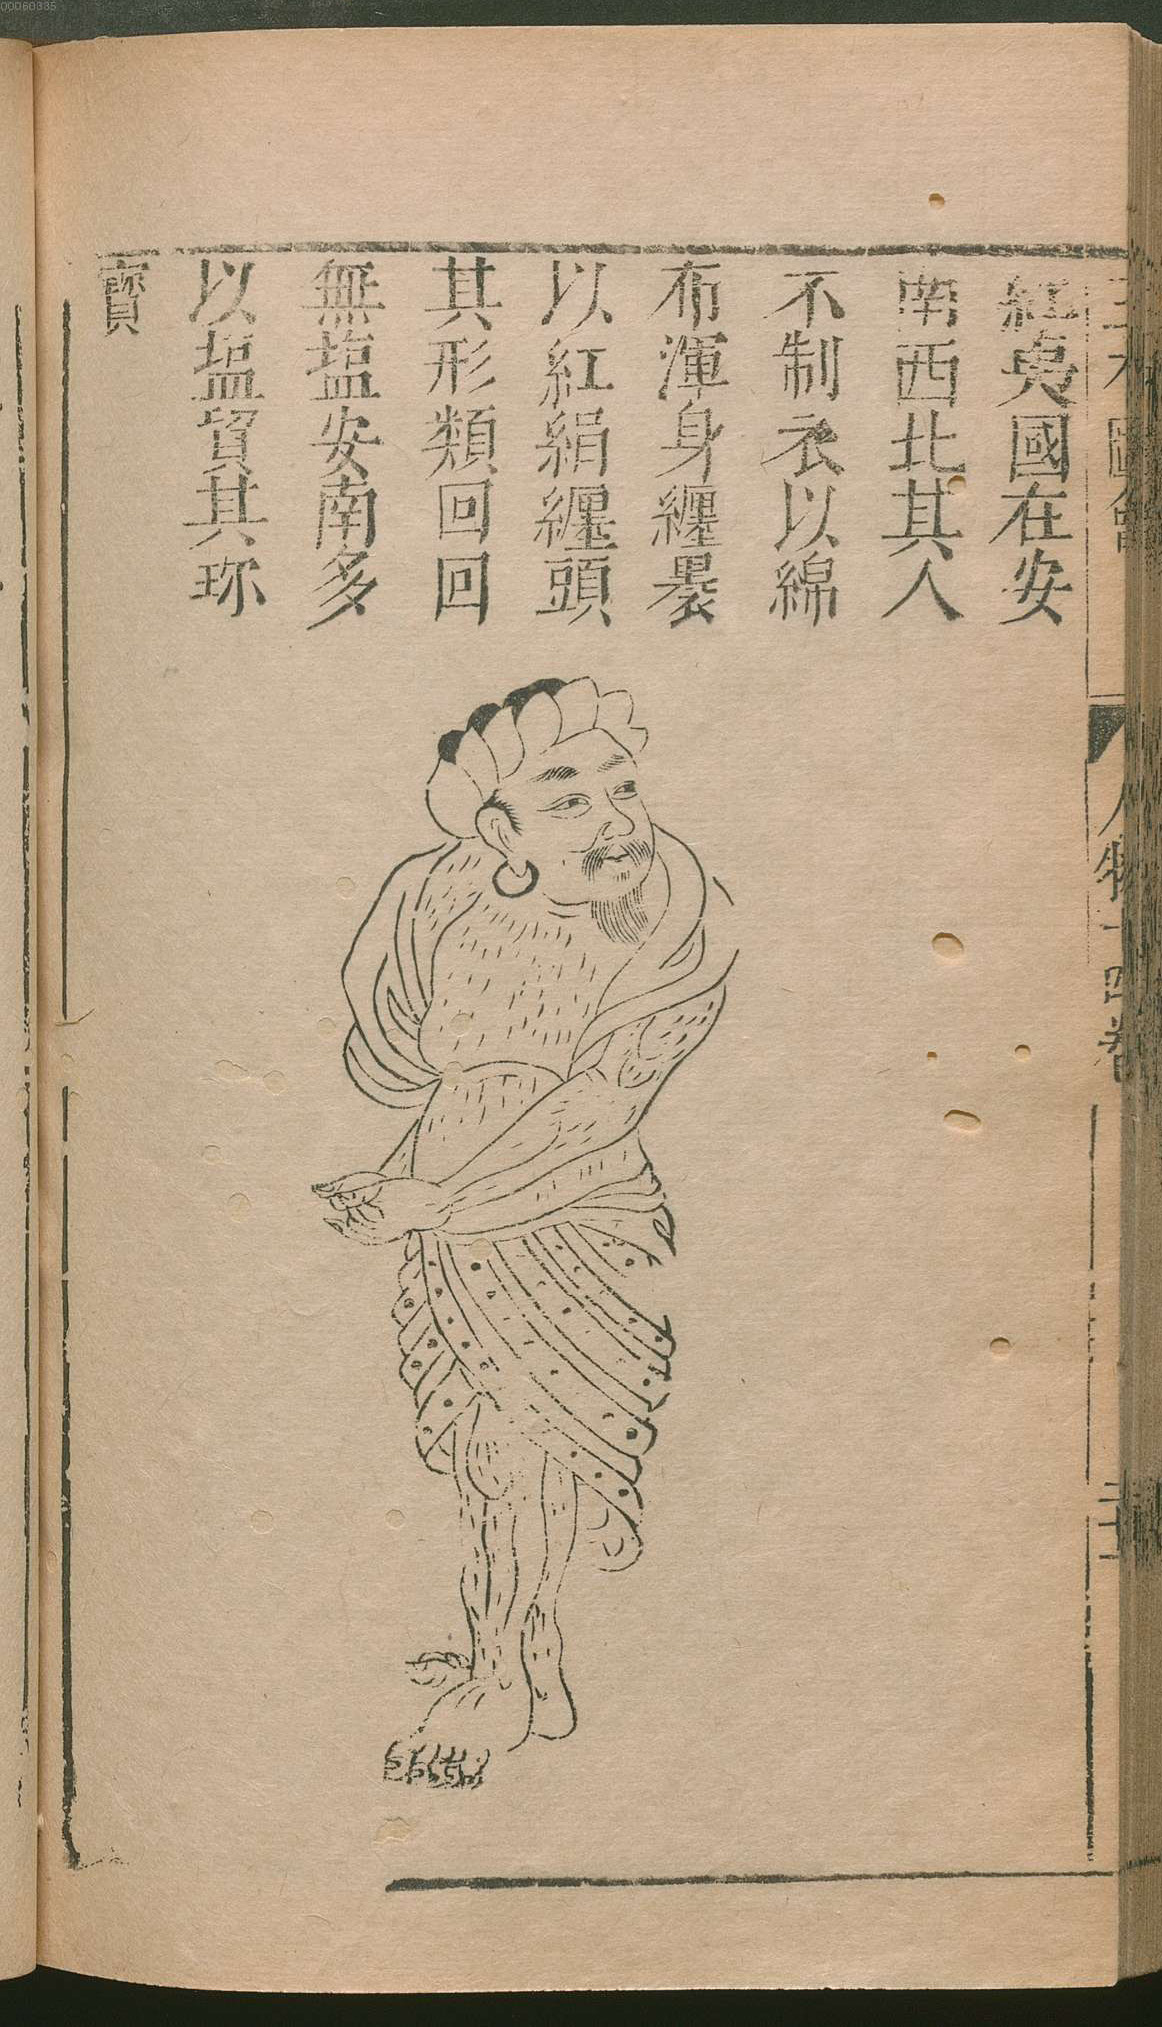 00060335
三才圖會
人物十四卷
紅夷國在安
南西北其人
不制衣以綿
布渾身纏褁
以紅絹纏頭
其形類回回
無塩安南多
以塩貿其珎
寳